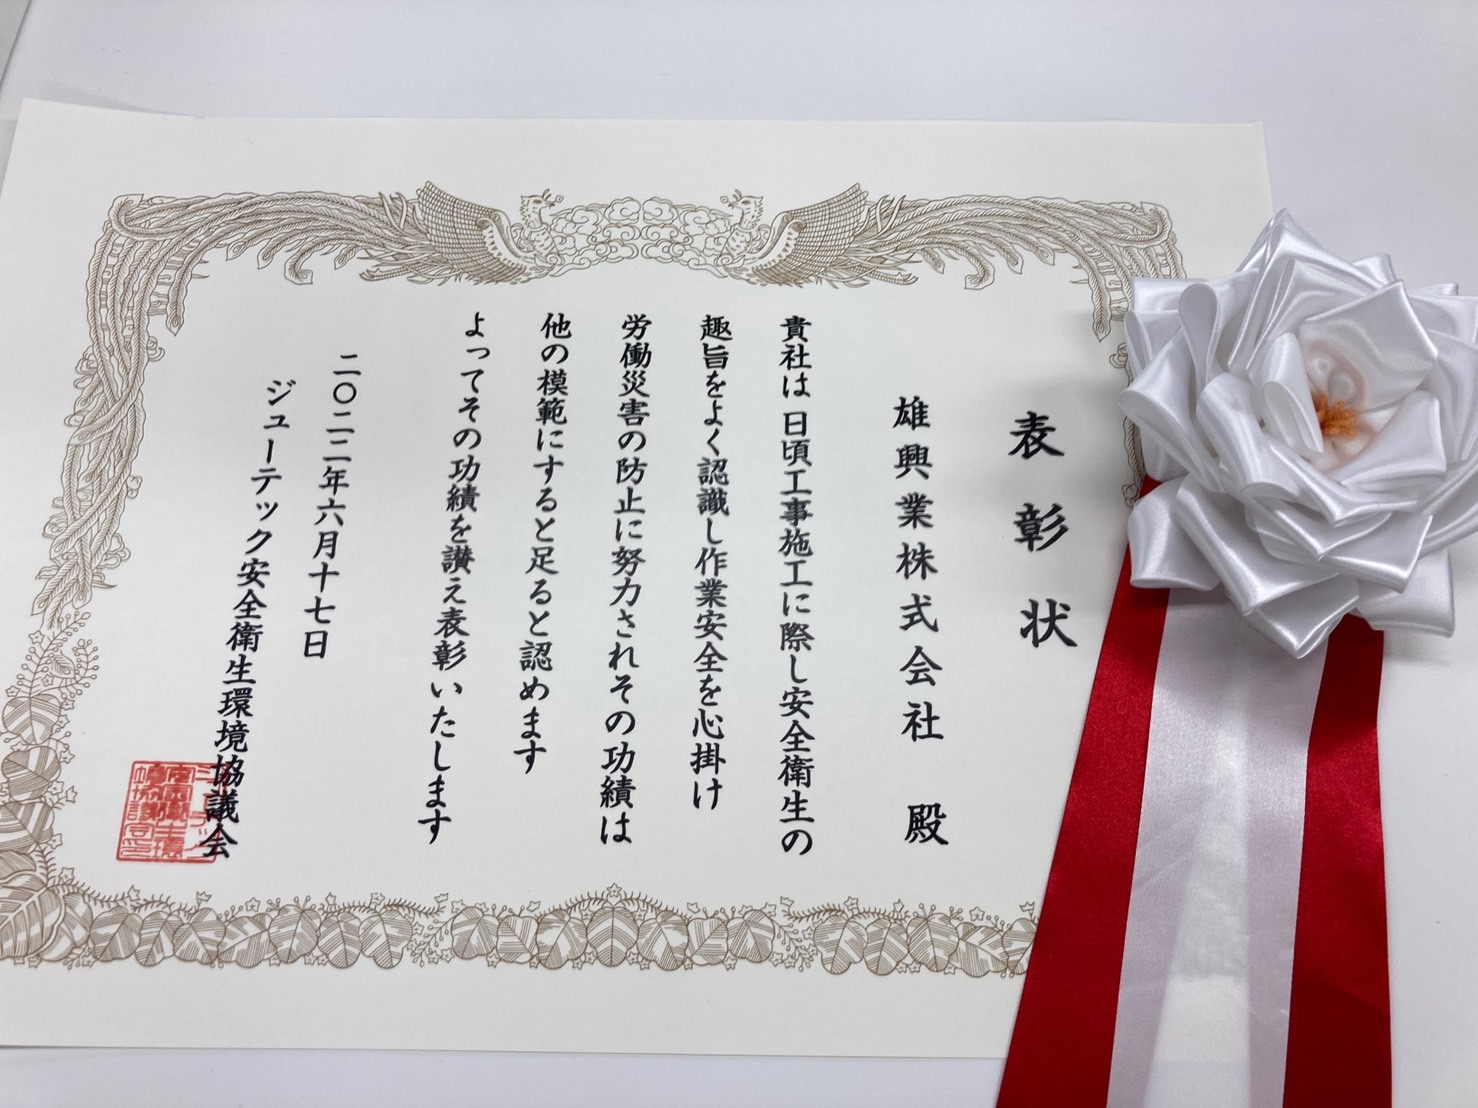 表彰状
雄興業株式会社 殿
貴社は日頃工事施工に際し安全衛生の
趣旨をよく認識し作業安全を心掛け
労働災害の防止に努力されその功績は
他の模範にすると足ると認めます
よってその功績を讃え表彰いたします
二〇二二年六月十七日
ジューテック安全衛生環境協議会